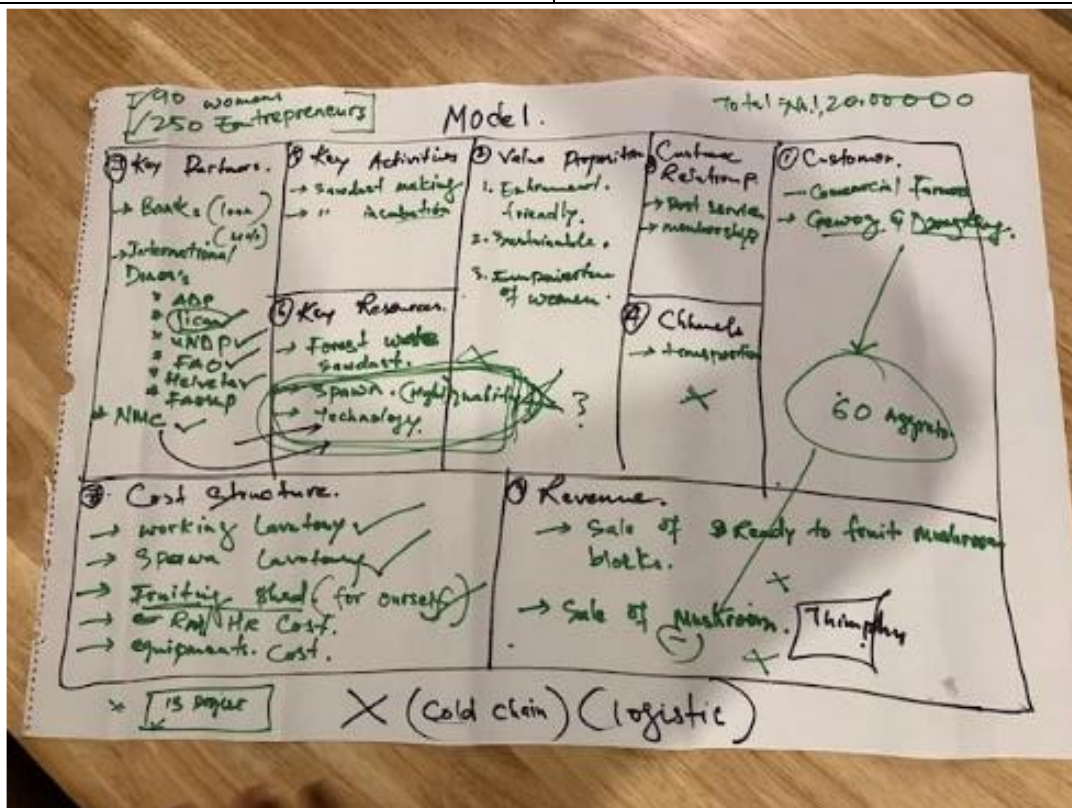 90 womens
250 Entrepreneurs
Model.
Key Partners.
→ Banks (loan)
→ International
Donors
* ADP
* Jica
* UNDP
* FAO
* Helvetas
→ NMC
Key Activities
→ Sawdust making
→ " incubation
⑥ Key Resources.
→ Forest waste
sawdust.
→ Spawn. (High quality)
→ Technology.
?
② Value Proposition
1. friendly.
2. Sustainable.
3. of women.
Relationship
→ Post service
→ membership
④ Channels
→ transportion
X
① Customer.
→ Comercial Farmers
→ Gewog &
60
Cost Structure.
→ working
→ Spawn
→ Fruiting Shed (for ourself)
→ HR Cost.
→ equipments. Cost.
Revenue.
→ Sale of Ready to fruit mushroom
blocks.
→ Sale of Mushroom.
(-)
Thimphu
X
X
X (Cold chain) (logistic)